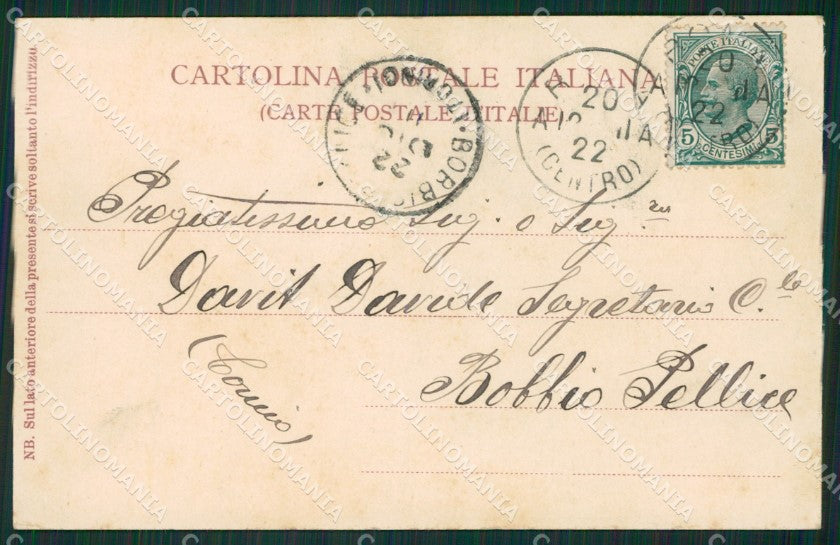 CARTOLINA POSTALE ITALIANA
(CARTE POSTALE D'ITALIE)
NB. Sul lato anteriore della presente si scrive soltanto l'indirizzo.
POSTE ITALIANE
5 5
CENTESIMI
20
22
(CENTRO)
BOBBIO PELLICE (TORINO)
22
Pregiatissimo Sig. e Sig.ra
Davit Davide Segretario C.le
Bobbio Pellice
(Torino)
CARTOLINOMANIA